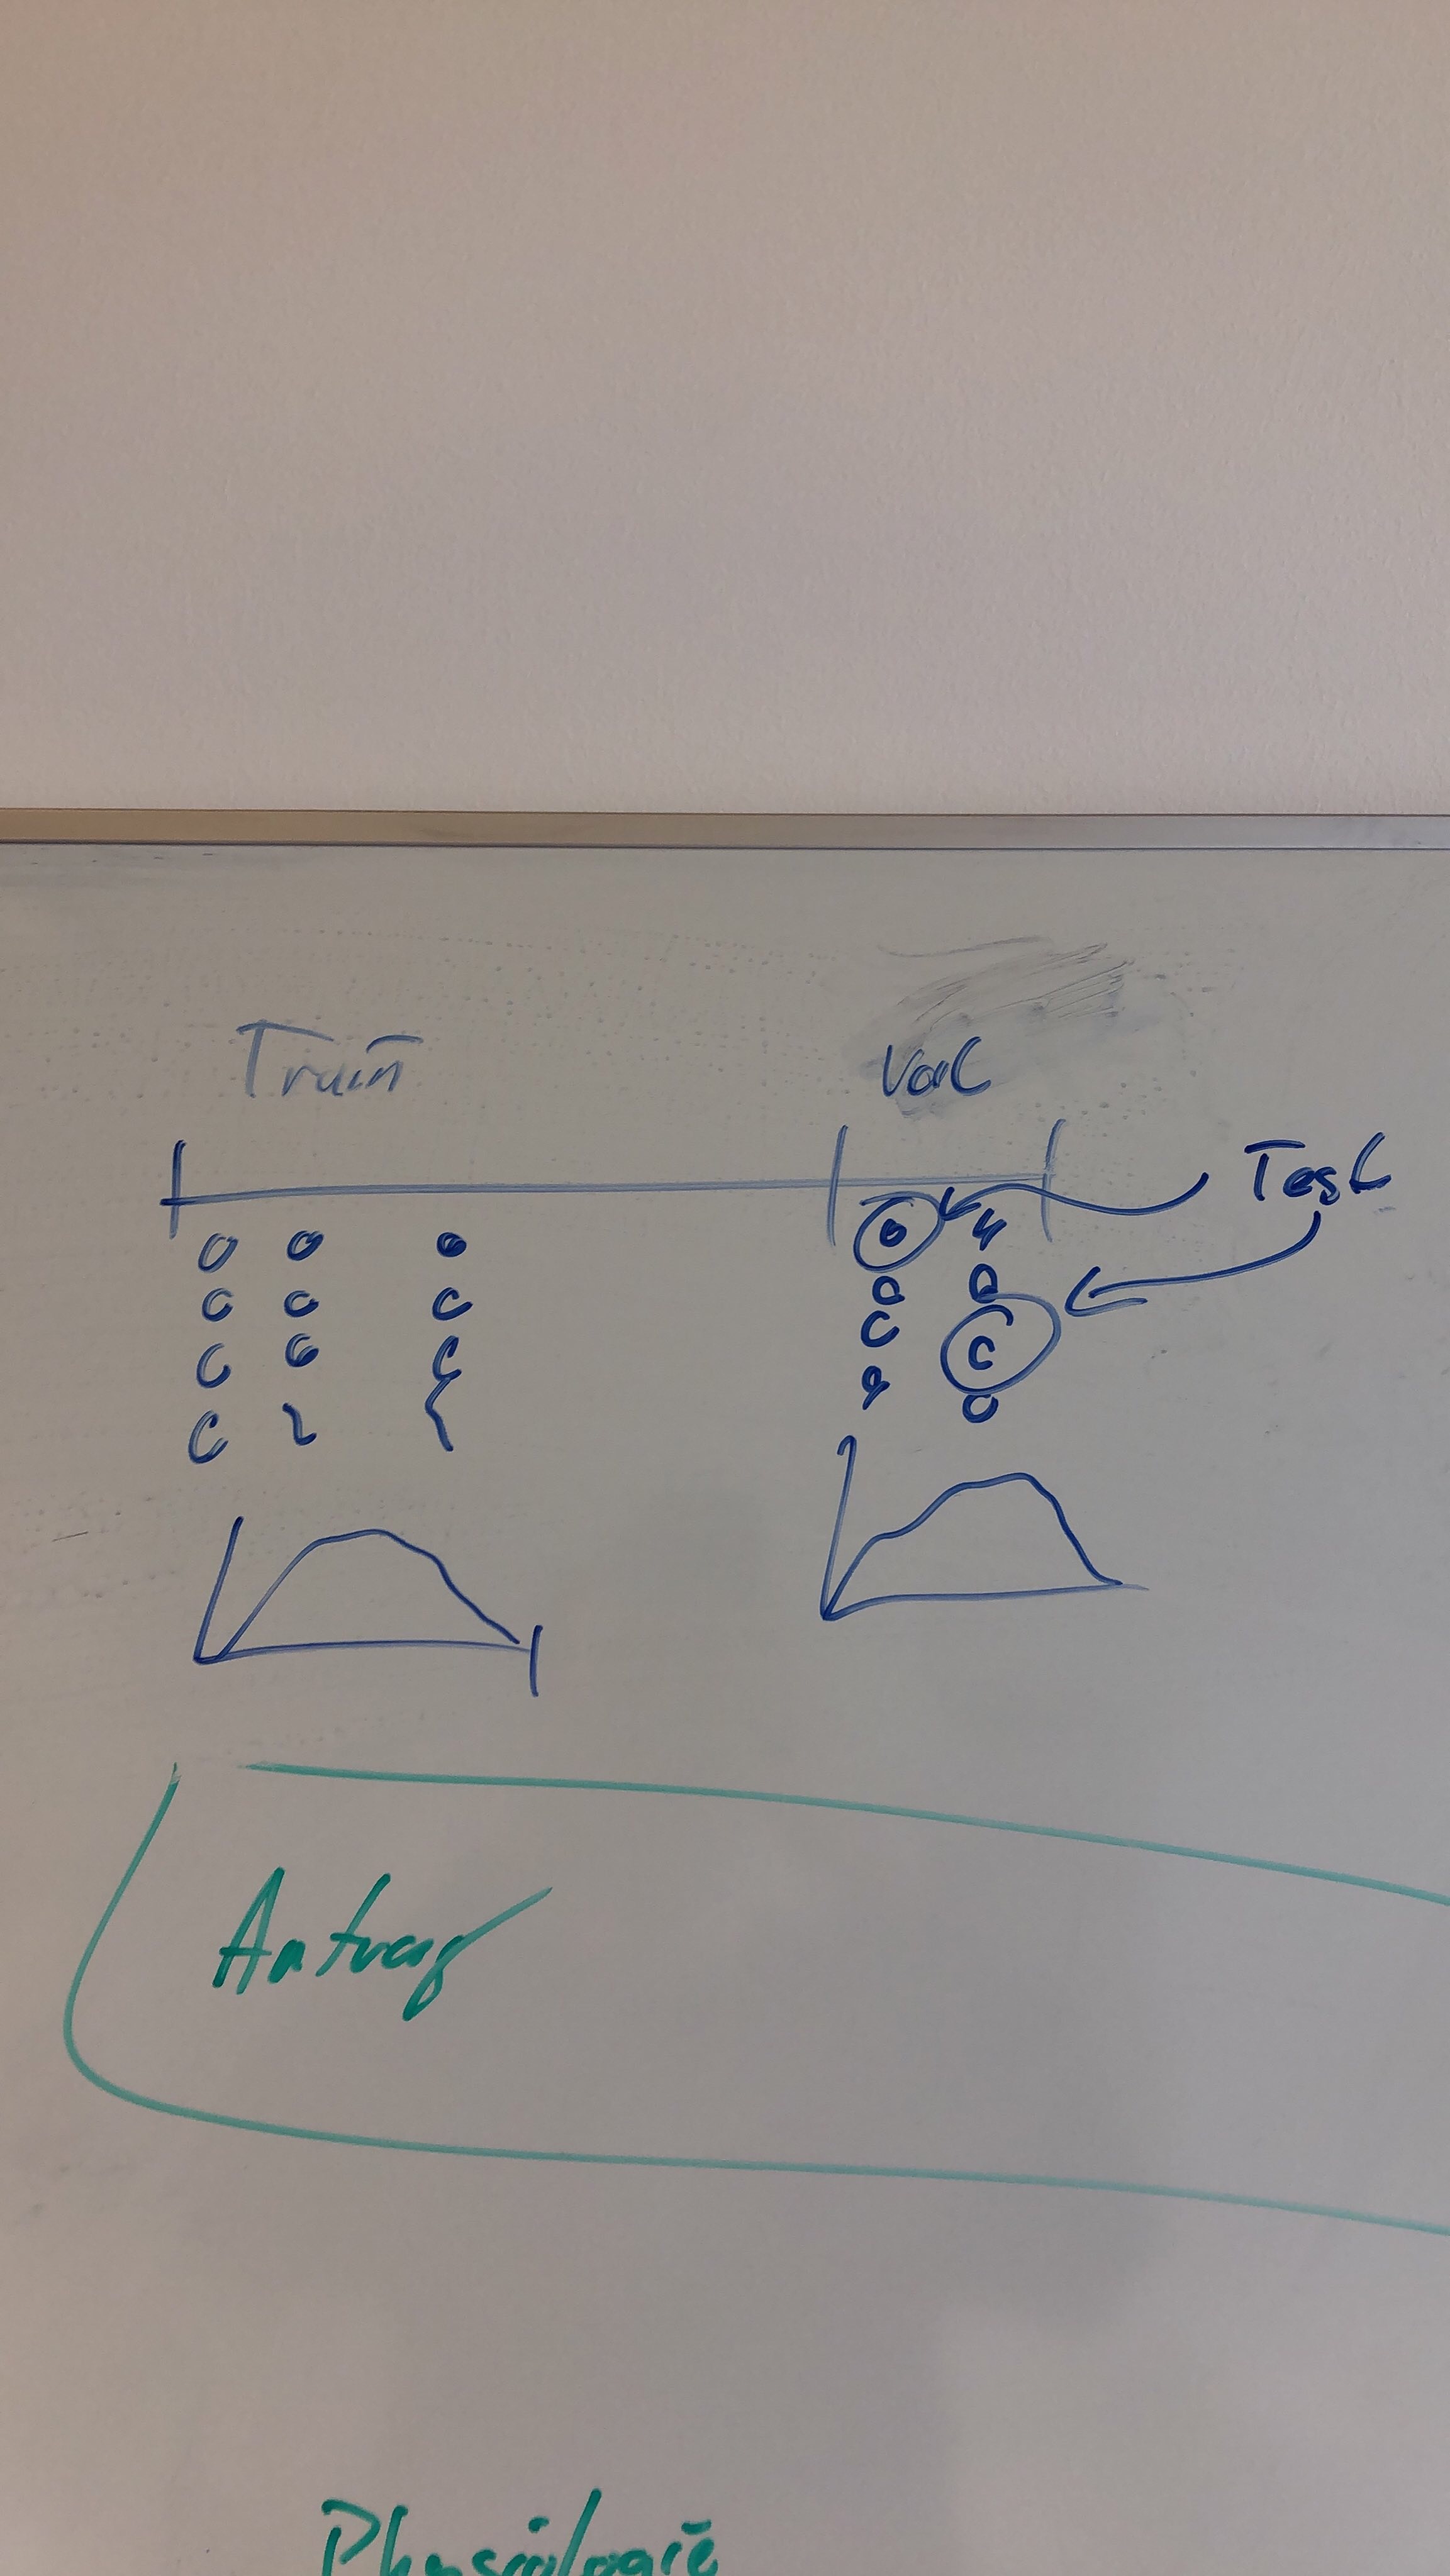 Train Val
Test
Antrag
Physiologie